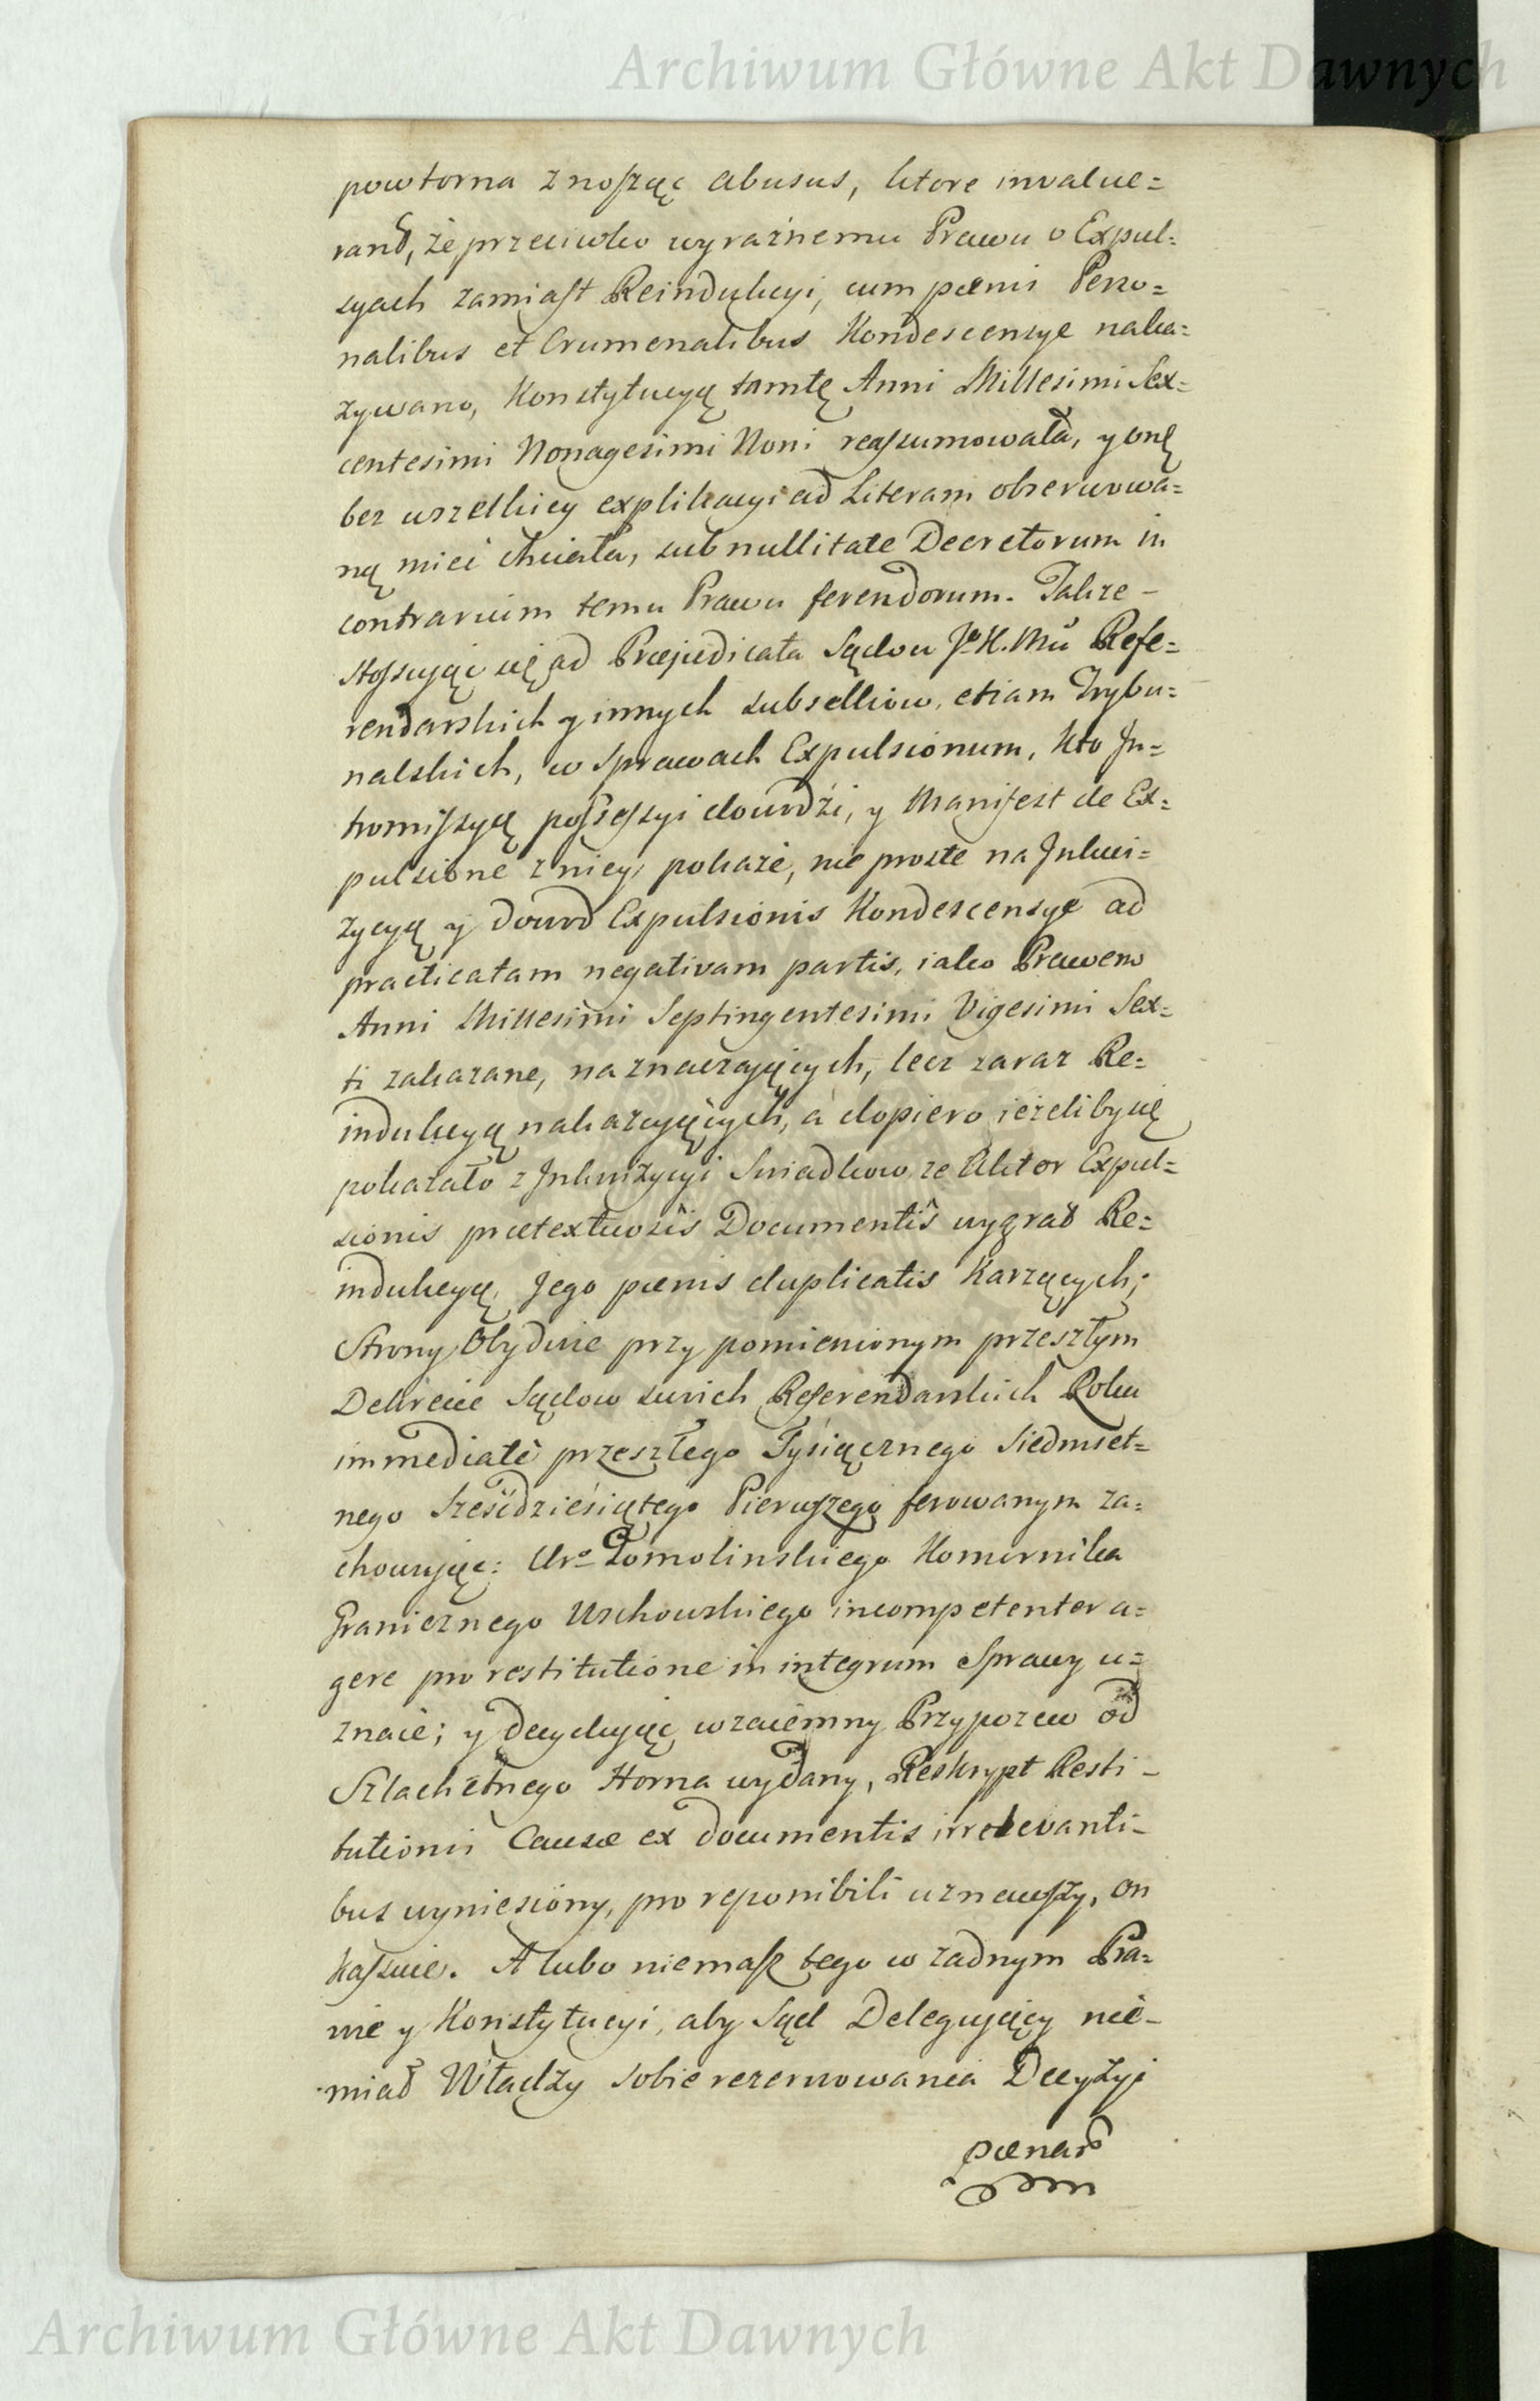 Archiwum Główne Akt Dawnych
powtorna znosząc abusus, ktore invalue=
rant, że przeciwko wyraźnemu Prawu o Expul=
syach zamiast Reindukcyi, cum pœnis Perso=
nalibus et Crumenalibus Kondescensye naka=
zywano, Konstytucyą tamtę Anni Millesimi Sex=
centesimi Nonagesimi Noni reassumowała, y onę
bez wszelkiey explikacyi ad Literam obserwowa=
ną mieć chciała, sub nullitate Decretorum in
contrarium temu Prawu ferendorum. Także -
stosuiąc się ad Præjudicata Sądow J. K. Mci Refe=
rendarskich y innych subselliow, etiam Trybu=
nalskich, w sprawach Expulsionum, kto In=
tromissyą possessyi dowodzi, y Manifest de Ex=
pulsione z niey pokaże, nie proste na Inkwi=
zycyą y dowod Expulsionis Kondescensye ad
practicatam negativam partis, iako Prawem
Anni Millesimi Septingentesimi Vigesimi Sex=
ti zakazane, naznaczaiących, lecz zaraz Re=
indukcyą nakazuiących, a dopiero ieżeliby się
pokazało z Inkwizycyi Swiadkow, ze Aktor Expul=
sionis prætextuosis Documentis wygrał Re=
indukcyą, Jego pœnis duplicatis Karzących;
Strony Obydwie przy pomienionym przeszłym
Dekrecie Sądow swich Referendarskich Roku
immediate przeszłego Tysiącznego Siedmset=
nego Sześćdziesiątego Pierwszego ferowanym za=
chowuiąc: Uro Pomolinskiego Komornika
Granicznego Wschowskiego incompetenter a=
gere pro restitutione in integrum Sprawy u=
znaie; y decyduiąc wzaiemny Przypozew od
Szlachetnego Horna wydany, Reskrypt Resti -
tutionis Causæ ex documentis irrelevanti-
bus wyniesiony, pro reponibili uznawszy, on
kassuie. A lubo niemasz tego w zadnym Pra=
wie y Konstytucyi, aby Sąd Deleguiący nie-
miał Władzy sobie rezerwowania Decyzyi
pœnar
Archiwum Główne Akt Dawnych